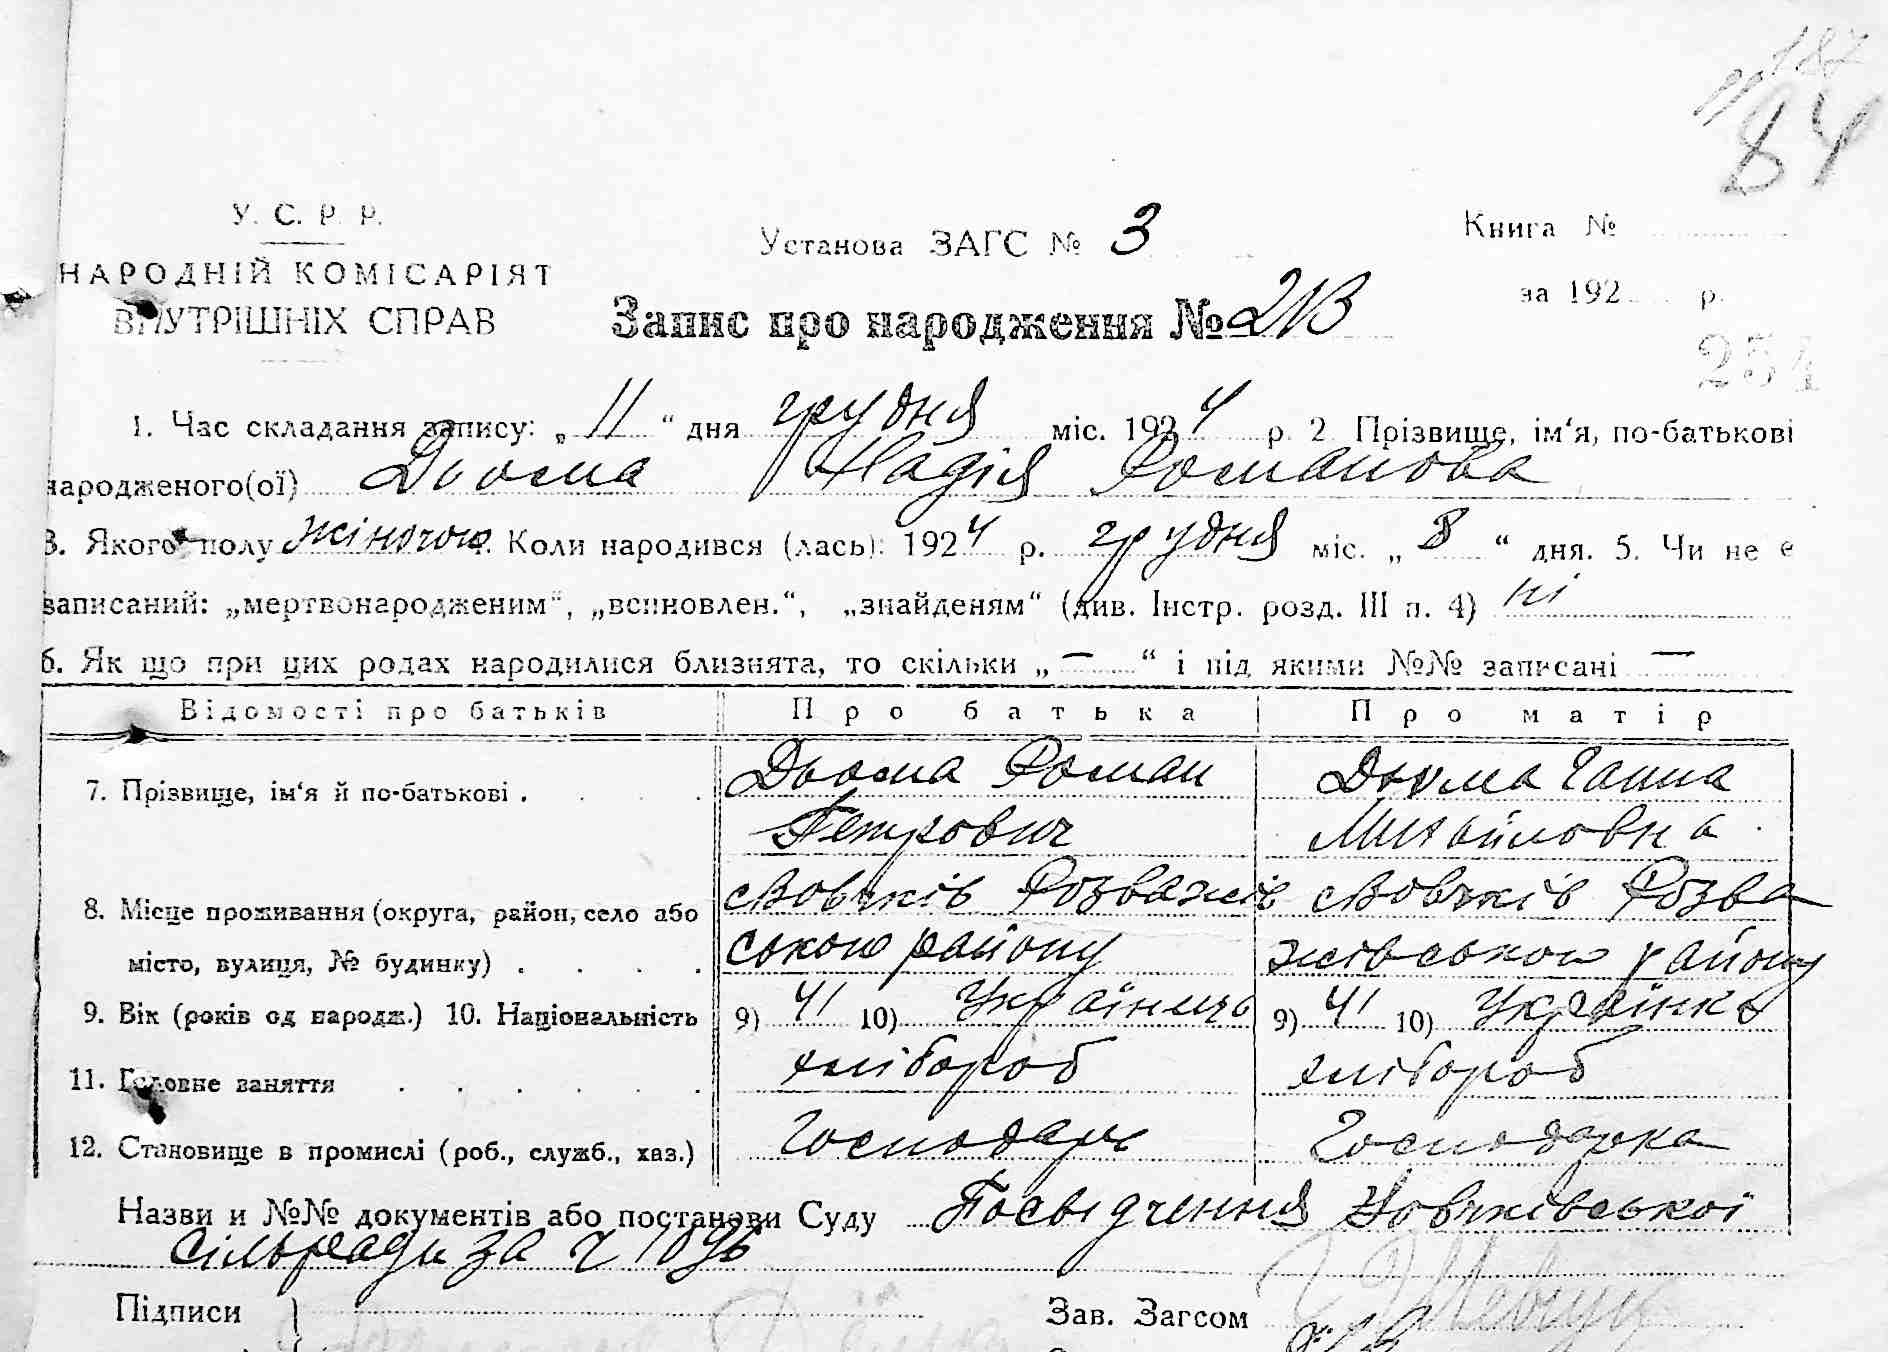 187
84
У. С. Р. Р.
НАРОДНІЙ КОМІСАРІЯТ
ВНУТРІШНІХ СПРАВ
Установа ЗАГС № 3
Книга №
за 192 р.
Запис про народження № 213
254
1. Час складання запису: „ 11 “ дня грудня міс. 1924 р. 2. Прізвище, ім‘я, по-батькові
народженого(ої) Дьома Надія Романова
3. Якого полу жіночою. Коли народився (лась): 1924 р. грудня міс. „ 8 “ дня. 5. Чи не є
записаний: „мертвонародженим“, „всиновлен.“, „знайденям“ (див. Інстр. розд. III п. 4) ні
6. Як що при цих родах народилися близнята, то скільки „ — “ і під якими №№ записані —
Відомості про батьків Про батька Про матір
7. Прізвище, ім‘я й по-батькові . Дьома Роман Дьома Ганна
Петрович Михайловна
8. Місце проживання (округа, район, село або Вовчків Розважів Вовчків Розва
місто, вулиця, № будинку) . ською району жівською району
9. Вік (років од народж.) 10. Національність 9) 41 10) Українець 9) 41 10) Українка
11. Головне заняття хлібороб хлібороб
12. Становище в промислі (роб., служб., хаз.) Господарь Господарка
Назви и №№ документів або постанови Суду Посвідчення Вовчківської
сільради за ч 1096
Підписи
Зав. Загсом